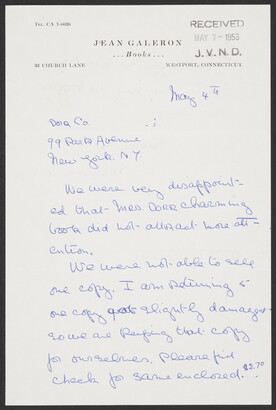 TEL. CA 7-6636
RECEIVED
MAY 7 - 1953
J. V. N. D.
JEAN GALERON
...Books...
22 CHURCH LANE
WESTPORT, CONNECTICUT
May 4th
Dorr Co
99 Park Avenue
New York. N.Y.
We were very disappoint-
ed that Mrs Dorr charming
book did not attract more att-
ention.
We were not able to sell
one copy. I am returning 5
one copy slightly damaged
so we are keeping that copy
for ourselves. Please find
check for same enclosed. $2.70